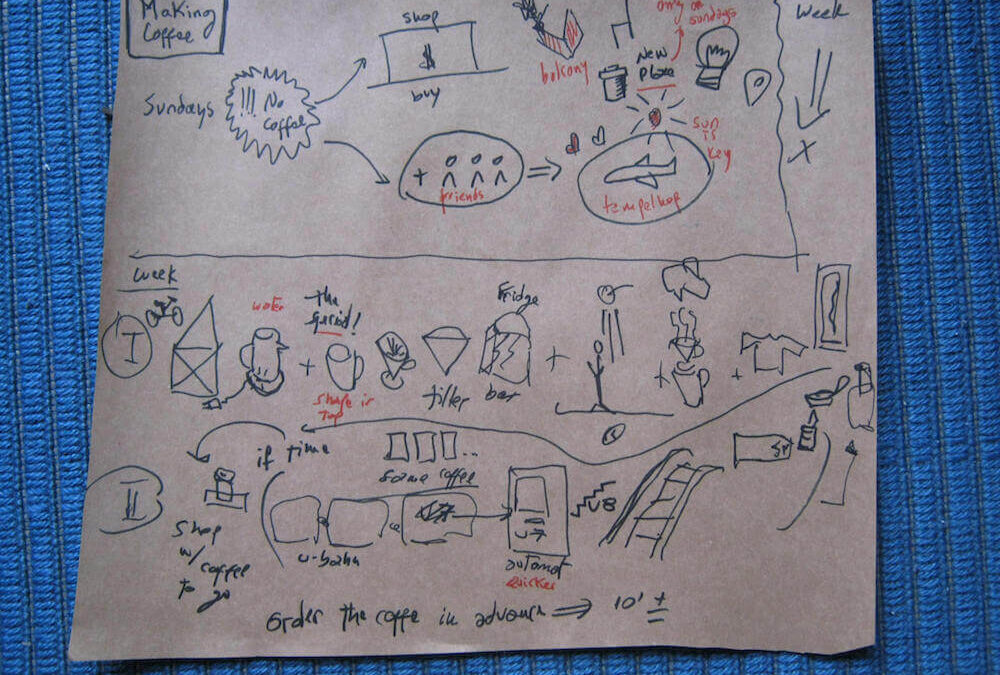 Making
Coffee
Sundays
!!! No
Coffee
shop
$
buy
+
friends
⇒
balcony
New
place
only on
sundays
sun
is
key
tempelhof
Week
X
Week
I
water
+
the
grind!
Shape is
Top
filter
Fridge
bar
+
+
+
if time
II
Shop
w/ coffee
to
go
some coffee
...
u-bahn
automat
quicker
U8
order the coffe in advance ⇒ 10' +